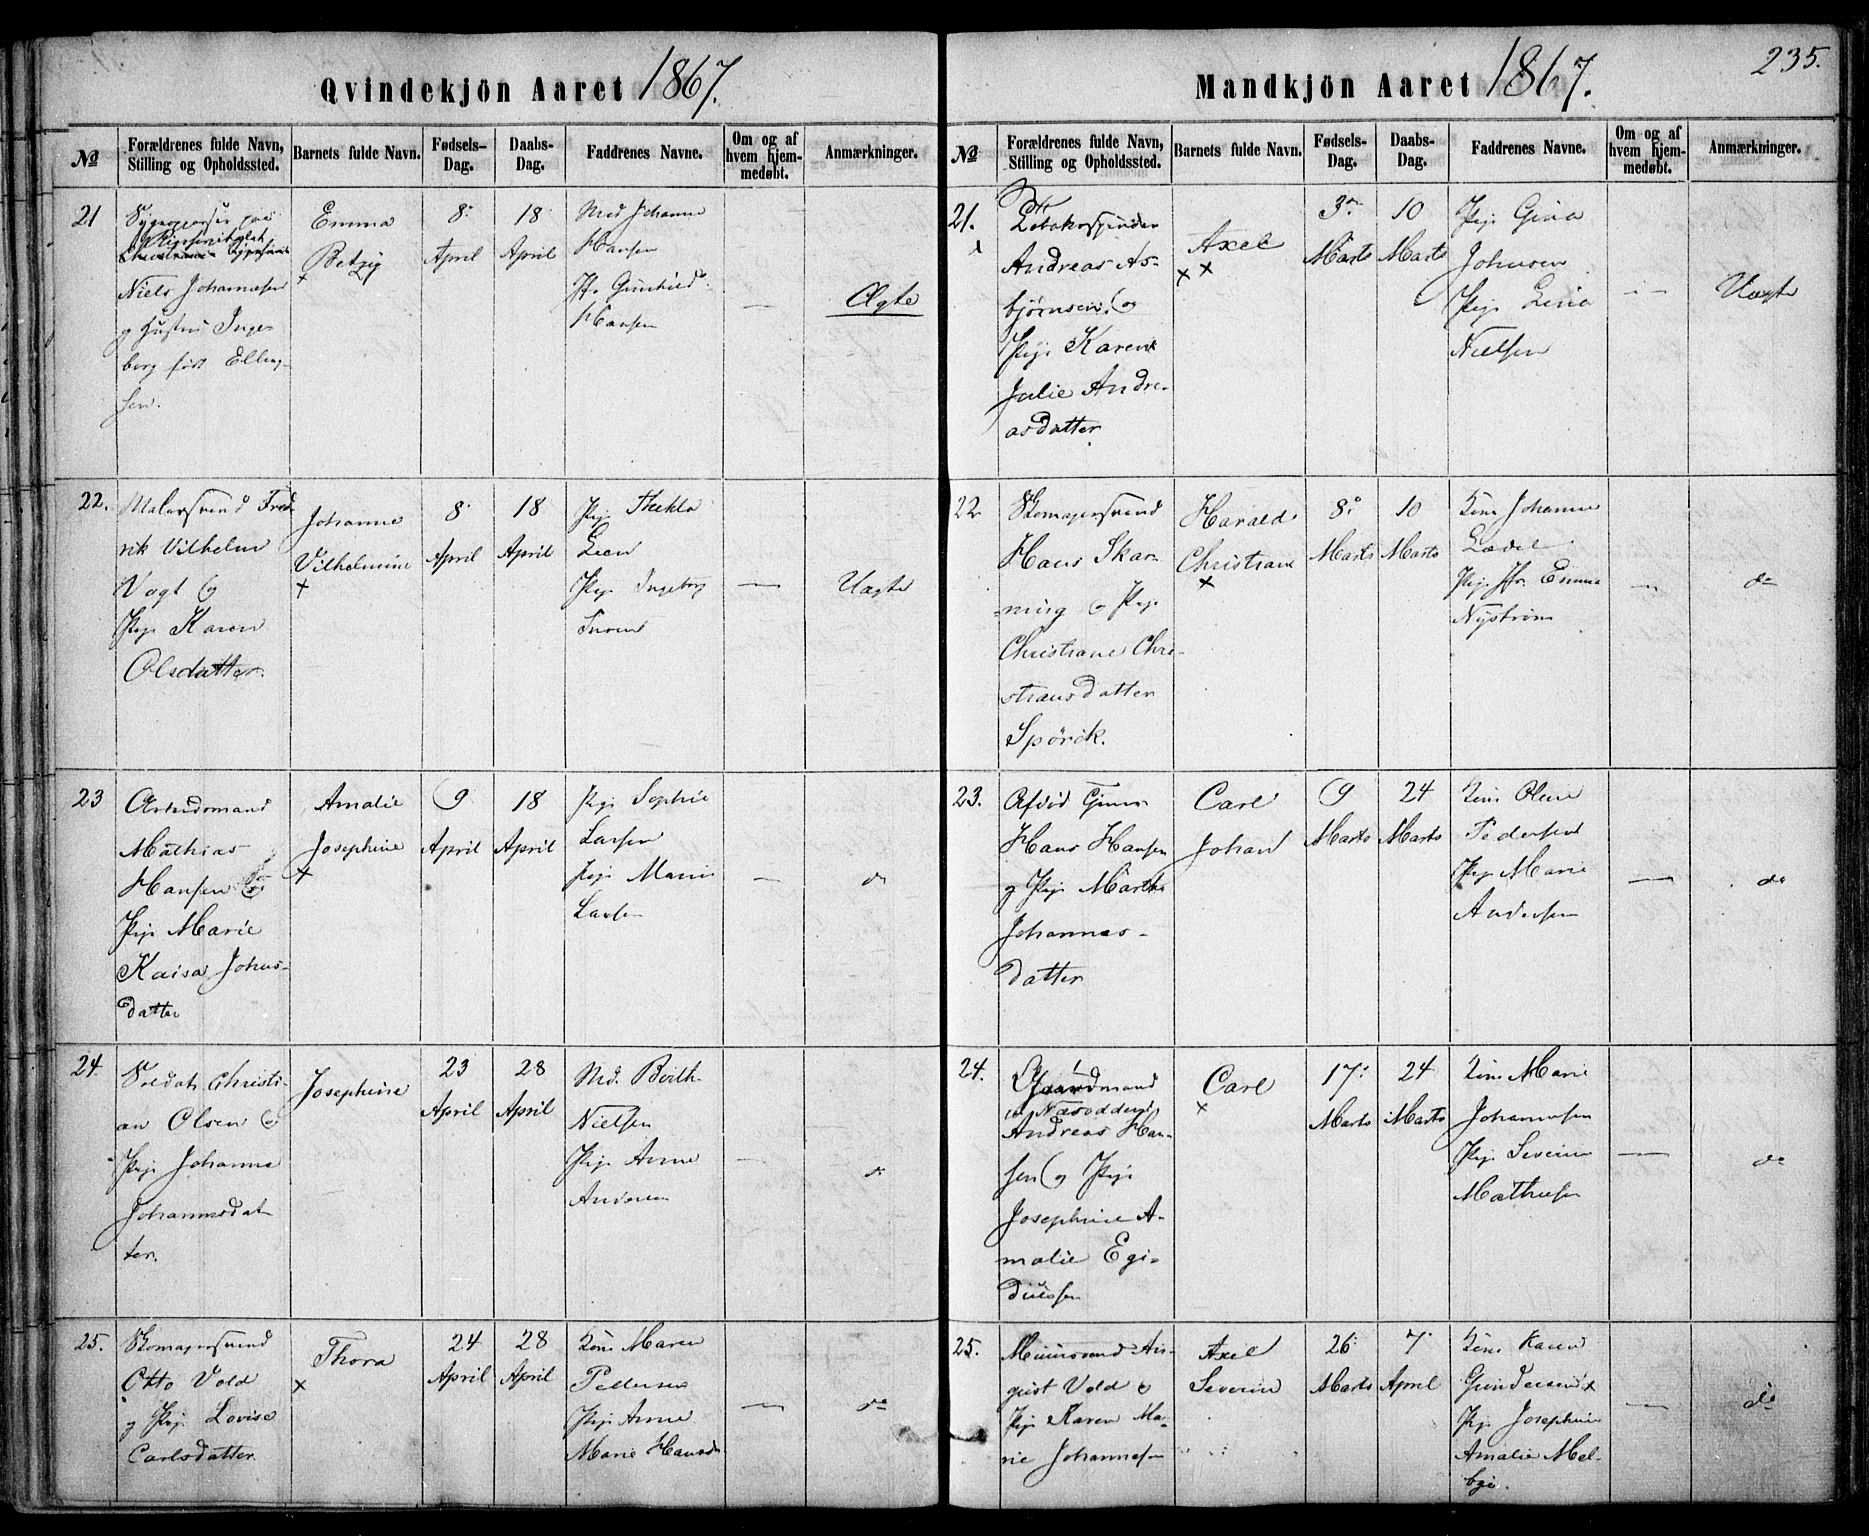 Qvindekjön Aaret 1867.
№
Forældrenes fulde Navn,
Stilling og Opholdssted.
Barnets fulde Navn.
Fødsels-
Dag.
Daabs-
Dag.
Faddrenes Navne.
Om og af
hvem hjem-
medøbt.
Anmærkninger.
21
Niels Johannesen
og Hustru Inge-
borg født Elling-
sen.
Emma
Betzy
×
8
April
18
April
Md Johanne
Hansen
Jfr. Gunhild
Hansen
—
Ægte
22.
Malersvend Fred
rik Vilhelm
Vogt og
Pige Karen
Olsdatter.
Johanne
Vilhelmine
×
8
April
18
April
Pige Thekla
Lien
Pige Ingeborg
—
Uægte
23
Arbeidsmand
Mathias
Hansen og
Pige Marie
Kaisa Johns-
datter
Amalie
Josephine
×
9
April
18
April
Pige Sophie
Larsen
Pige Marie
Larsen
—
do
24.
Soldat Christi-
an Olsen og
Pige Johanne
Johannesdat-
ter.
Josephine
23
April
28
April
Md. Berthe
Nielsen
Pige Anne
Andersen
—
do
25.
Skomagersvend
Otto Vold
og Pige Lovise
Carlsdatter
Thora
×
24
April
28
April
Kone Maren
Pedersen
Pige Anne
Marie Hansd.
—
do
235.
Mandkjön Aaret 1867.
№
Forældrenes fulde Navn,
Stilling og Opholdssted.
Barnets fulde Navn.
Fødsels-
Dag.
Daabs-
Dag.
Faddrenes Navne.
Om og af
hvem hjem-
medøbt.
Anmærkninger.
21.
Tobaksspinder
Andreas As-
bjørnsen og
Pige Karen
Julie Andre-
asdatter
Axel
× ×
3
Marts
10
Marts
Pige Gina
Johnsen
Pige Lina
Nielsen
—
Uægte
22
Skomagersvend
Hans Skar-
ning og Pige
Christiane Chri-
stiansdatter
Spörck.
Harald
Christian
×
8
Marts
10
Marts
Kone Johanne
Pige Jfr. Emma
Nyström
—
do
23.
Hans Hansen
og Pige Marthe
Johannes-
datter
Carl
Johan
9
Marts
24
Marts
Kone Oline
Pedersen
Pige Marie
Andersen
—
do
24.
Gaardmand
i Næsodden
Andreas Han-
sen og Pige
Josephine A-
malie Egi-
diussen
Carl
×
17
Marts
24
Marts
Kone Marie
Johannesen
Pige Severine
Mathisen
—
do
25.
Muursvend Au-
gust Vold og
Pige Karen Ma-
rie Johannesen
Axel
Severin
26
Marts
7
April
Kone Karen
Gundersen
Pige Josephine
Amalie Mel-
bye.
—
do